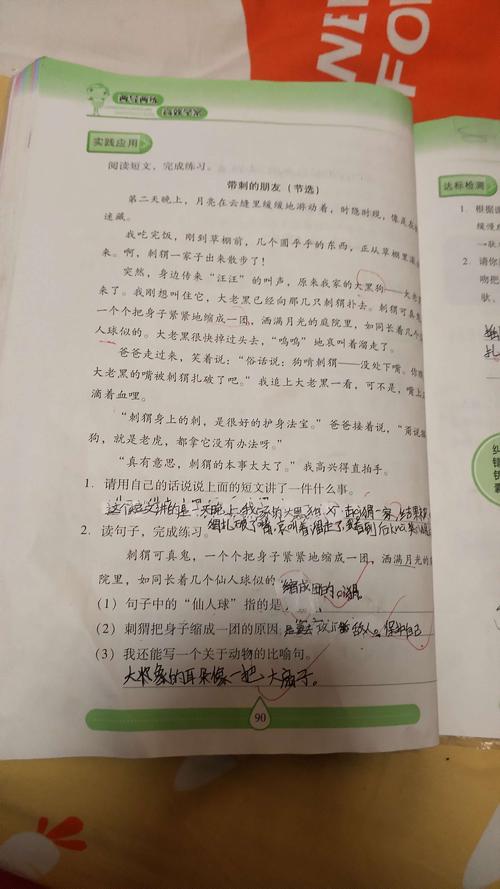 NEW
FOR
两导两练
高效学案
实践应用
阅读短文，完成练习。
带刺的朋友（节选）
第二天晚上，月亮在云缝里缓缓地游动着，时隐时现，像是在
迷藏。
我吃完饭，刚到草棚前，几个圆乎乎的东西，正从草棚里滚
来。啊，刺猬一家子出来散步了！
突然，身边传来“汪汪”的叫声，原来我家的大黑狗——大老
来了。我刚想叫住它，大老黑已经向那几只刺猬扑去。刺猬可真
一个个把身子紧紧地缩成一团，洒满月光的庭院里，如同长着几个
人球似的。大老黑很快掉过头去，“呜呜”地哀叫着溜走了。
爸爸走过来，笑着说：“俗话说：狗啃刺猬——没处下嘴。你
大老黑的嘴被刺猬扎破了吧。”我追上大老黑一看，可不是，嘴上
滴着血哩。
“刺猬身上的刺，是很好的护身法宝。”爸爸接着说，“甭说
狗，就是老虎，都拿它没有办法呀。”
“真有意思，刺猬的本事太大了。”我高兴得直拍手。
1. 请用自己的话说说上面的短文讲了一件什么事。
这个短文讲的是一天晚上，我家的大黑狗
2. 读句子，完成练习。
刺猬可真鬼，一个个把身子紧紧地缩成一团，洒满月光的
院里，如同长着几个仙人球似的
（1）句子中的“仙人球”指的是 缩成团的刺猬
（2）刺猬把身子缩成一团的原因 敌人。保护自己
（3）我还能写一个关于动物的比喻句。
大象的耳朵像一把大扇子。
90
达标检测
1. 根据
缓慢
2. 请你